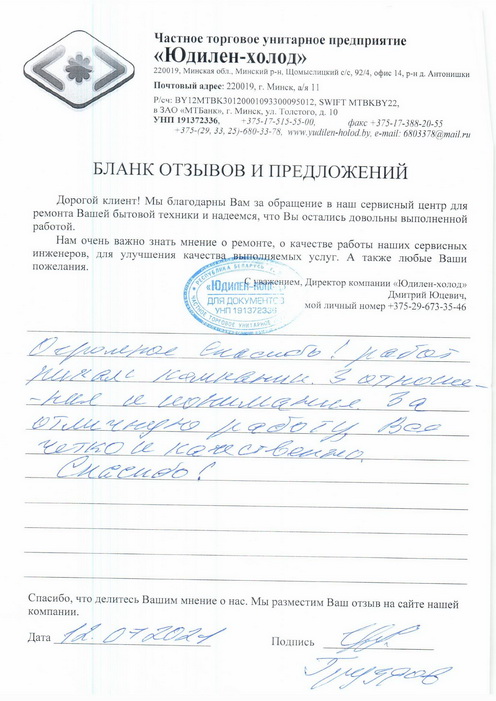 Частное торговое унитарное предприятие
«Юдилен-холод»
220019, Минская обл., Минский р-н, Щомыслицкий с/с, 92/4, офис 14, р-н д. Антонишки
Почтовый адрес: 220019, г. Минск, а/я 11
Р/сч: BY12MTBK30120001093300095012, SWIFT MTBKBY22,
в ЗАО «МТБанк», г. Минск, ул. Толстого, д. 10
УНП 191372336, +375-17-515-55-00, факс +375-17-388-20-55
+375-(29, 33, 25)-680-33-78, www.yudilen-holod.by, e-mail: 6803378@mail.ru
БЛАНК ОТЗЫВОВ И ПРЕДЛОЖЕНИЙ
Дорогой клиент! Мы благодарны Вам за обращение в наш сервисный центр для
ремонта Вашей бытовой техники и надеемся, что Вы остались довольны выполненной
работой.
Нам очень важно знать мнение о ремонте, о качестве работы наших сервисных
инженеров, для улучшения качества выполняемых услуг. А также любые Ваши
пожелания.
С уважением, Директор компании «Юдилен-холод»
Дмитрий Юцевич,
мой личный номер +375-29-673-35-46
РЕСПУБЛИКА БЕЛАРУСЬ
«ЮДИЛЕН-ХОЛОД»
ДЛЯ ДОКУМЕНТОВ
УНП 191372336
ЧАСТНОЕ ТОРГОВОЕ УНИТАРНОЕ
Огромное спасибо! работ
никам кампании. З отноше-
-ния и понимания. За
отличную работу, Все
четко и качественно.
Спасибо!
Спасибо, что делитесь Вашим мнение о нас. Мы разместим Ваш отзыв на сайте нашей
компании.
Дата 12.07.2021 Подпись